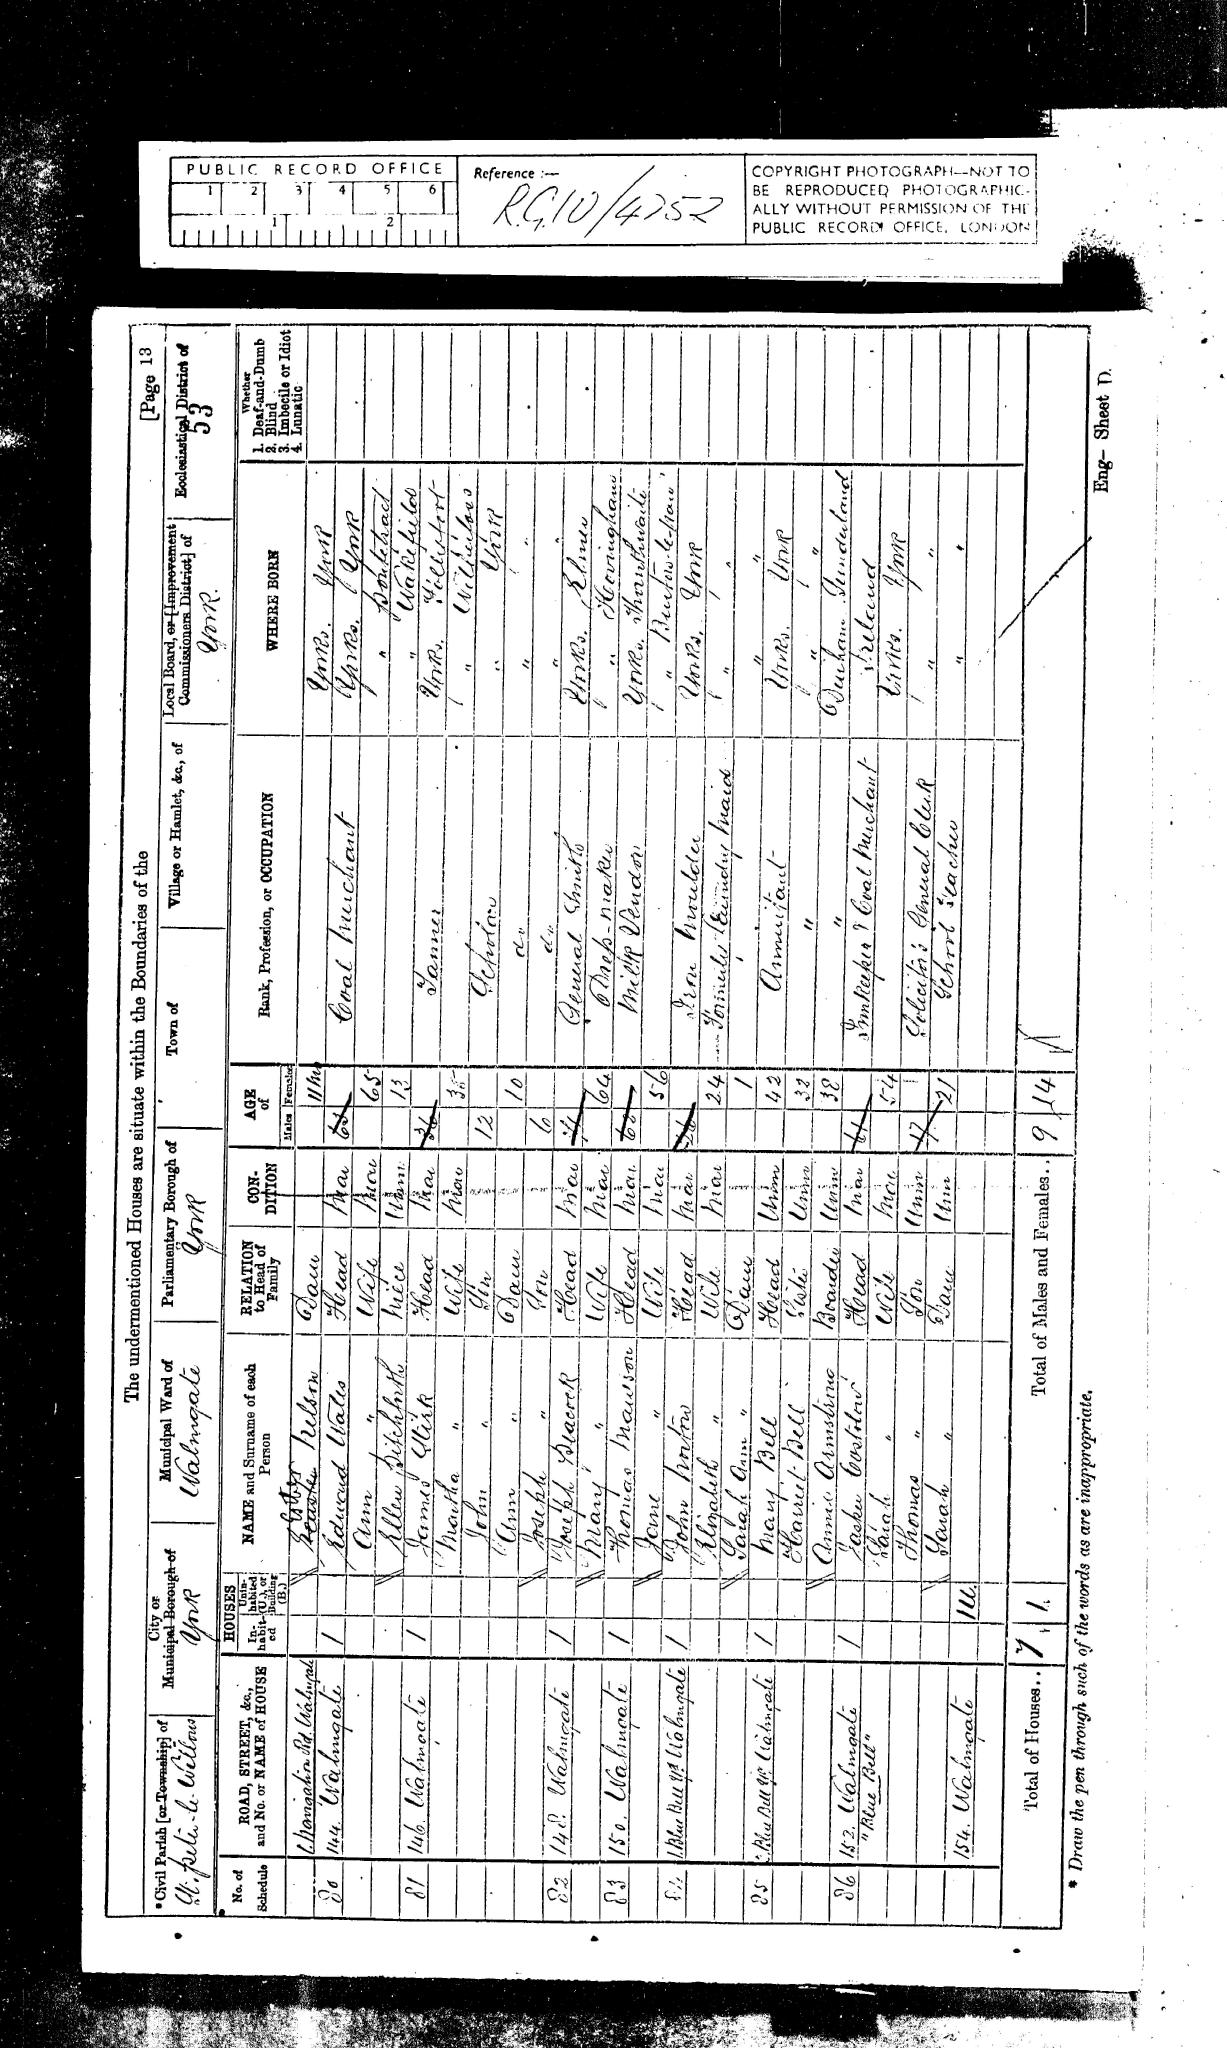 PUBLIC RECORD OFFICE
1 2 3 4 5 6
1 2
Reference :—
R.G.10/4752
COPYRIGHT PHOTOGRAPH—NOT TO
BE REPRODUCED PHOTOGRAPHIC-
ALLY WITHOUT PERMISSION OF THE
PUBLIC RECORD OFFICE, LONDON
The undermentioned Houses are situate within the Boundaries of the
[Page 13
*Civil Parish [or Township] of
City or Municipal Borough of
Municipal Ward of
Parliamentary Borough of
Town of
Village or Hamlet, &c., of
Local Board, or [Improvement Commissioners District] of
Ecclesiastical District of
St. Peter-le-Willows
York
Walmgate
York
York.
53
No. of Schedule
ROAD, STREET, &c., and No. or NAME of HOUSE
HOUSES
In-habit-ed
Unin-habited (U.), or Building (B.)
NAME and Surname of each Person
RELATION to Head of Family
CON-DITION
AGE of
Males
Females
Rank, Profession, or OCCUPATION
WHERE BORN
Whether
1. Deaf-and-Dumb
2. Blind
3. Imbecile or Idiot
4. Lunatic
1 Navigation Rd. Walmgate Nelson Daur 11 mo Yorks. York
80 144 Walmgate 1 Edward Wales Head Mar Coal Merchant Yorks. York
Ann " Wife Mar 65 " Pontefract
Ellen Niece Unm 13 " Wakefield
81 146 Walmgate 1 James Head Mar 36 Tanner Yorks.
Martha " Wife Mar " 
John " Son 12 Scholar " York
Ann " Daur 10 do " "
Joseph " Son 6 do " "
82 148 Walmgate 1 Joseph Peacock Head Mar General Smith Yorks.
Mary " Wife Mar 64 Dress-maker " Hovingham
83 150. Walmgate 1 Thomas Mawson Head Mar Milk Vendor Yorks. Thornthwaite
Jane " Wife Mar 56 "
1 Blue Bell Yd Walmgate 1 John Head Mar 26 Iron Moulder Yorks. York
Elizabeth " Wife Mar 24 Formerly Laundry Maid " "
Sarah Ann " Daur 1 " "
85 Blue Bell Yd Walmgate 1 Mary Bell Head Unm 42 Annuitant Yorks. York
Harriet Bell Sister Unm 32 " " "
Annie Armstrong Boarder Unm 38 " Durham Sunderland
86 152. Walmgate 1 Costolow Head Mar Innkeeper & Coal Merchant Ireland
"Blue Bell" Sarah " Wife Mar 54 Yorks. York
Thomas " Son Unm Solicitor's General Clerk " "
Sarah " Daur Unm 21 School Teacher " "
154. Walmgate 1U.
Total of Houses.. 7 1
Total of Males and Females.. 9 14
* Draw the pen through such of the words as are inappropriate.
Eng— Sheet D.